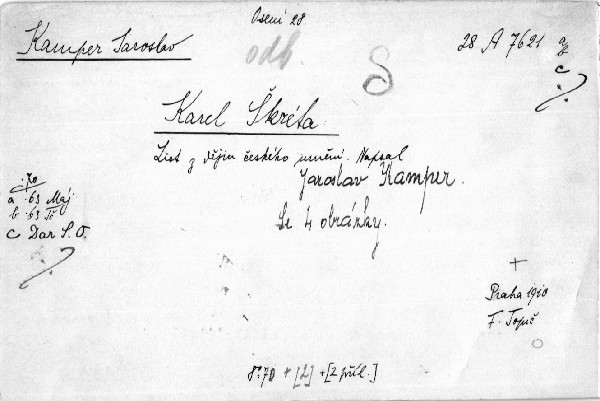 Osení 28
Kamper Jaroslav
odb.
28 A 7621
c
Karel Škréta.
List z dějin českého umění. Napsal
Jaroslav Kamper.
Se 4 obrázky.
:70
a :63 Máj
b :63
c Dar S. O.
Praha 1910
F. Topič
8°. 70 + [2] + [2 příl.]